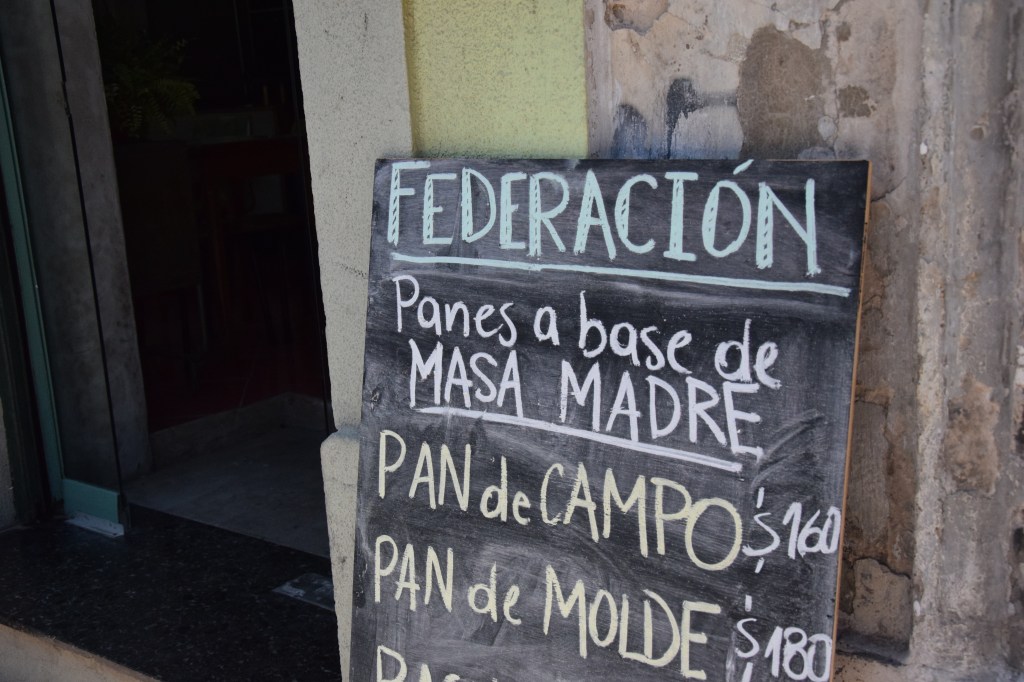 FEDERACIÓN
Panes a base de
MASA MADRE
PAN de CAMPO $160
PAN de MOLDE $180